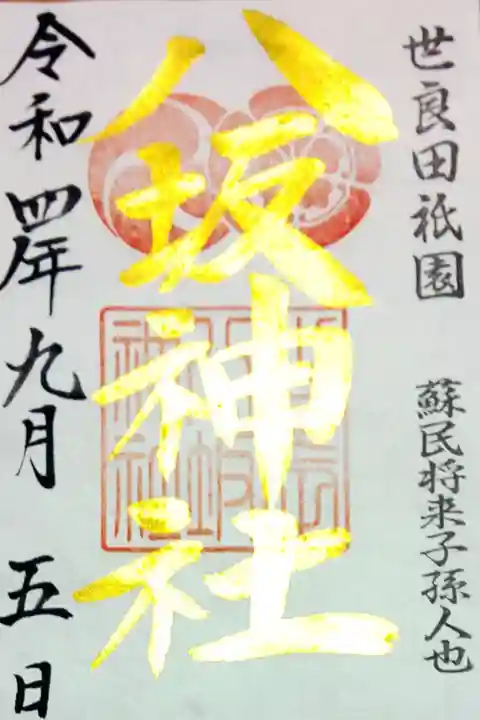 世良田祇園
蘇民将来子孫人也
八坂神社
令和四年九月五日